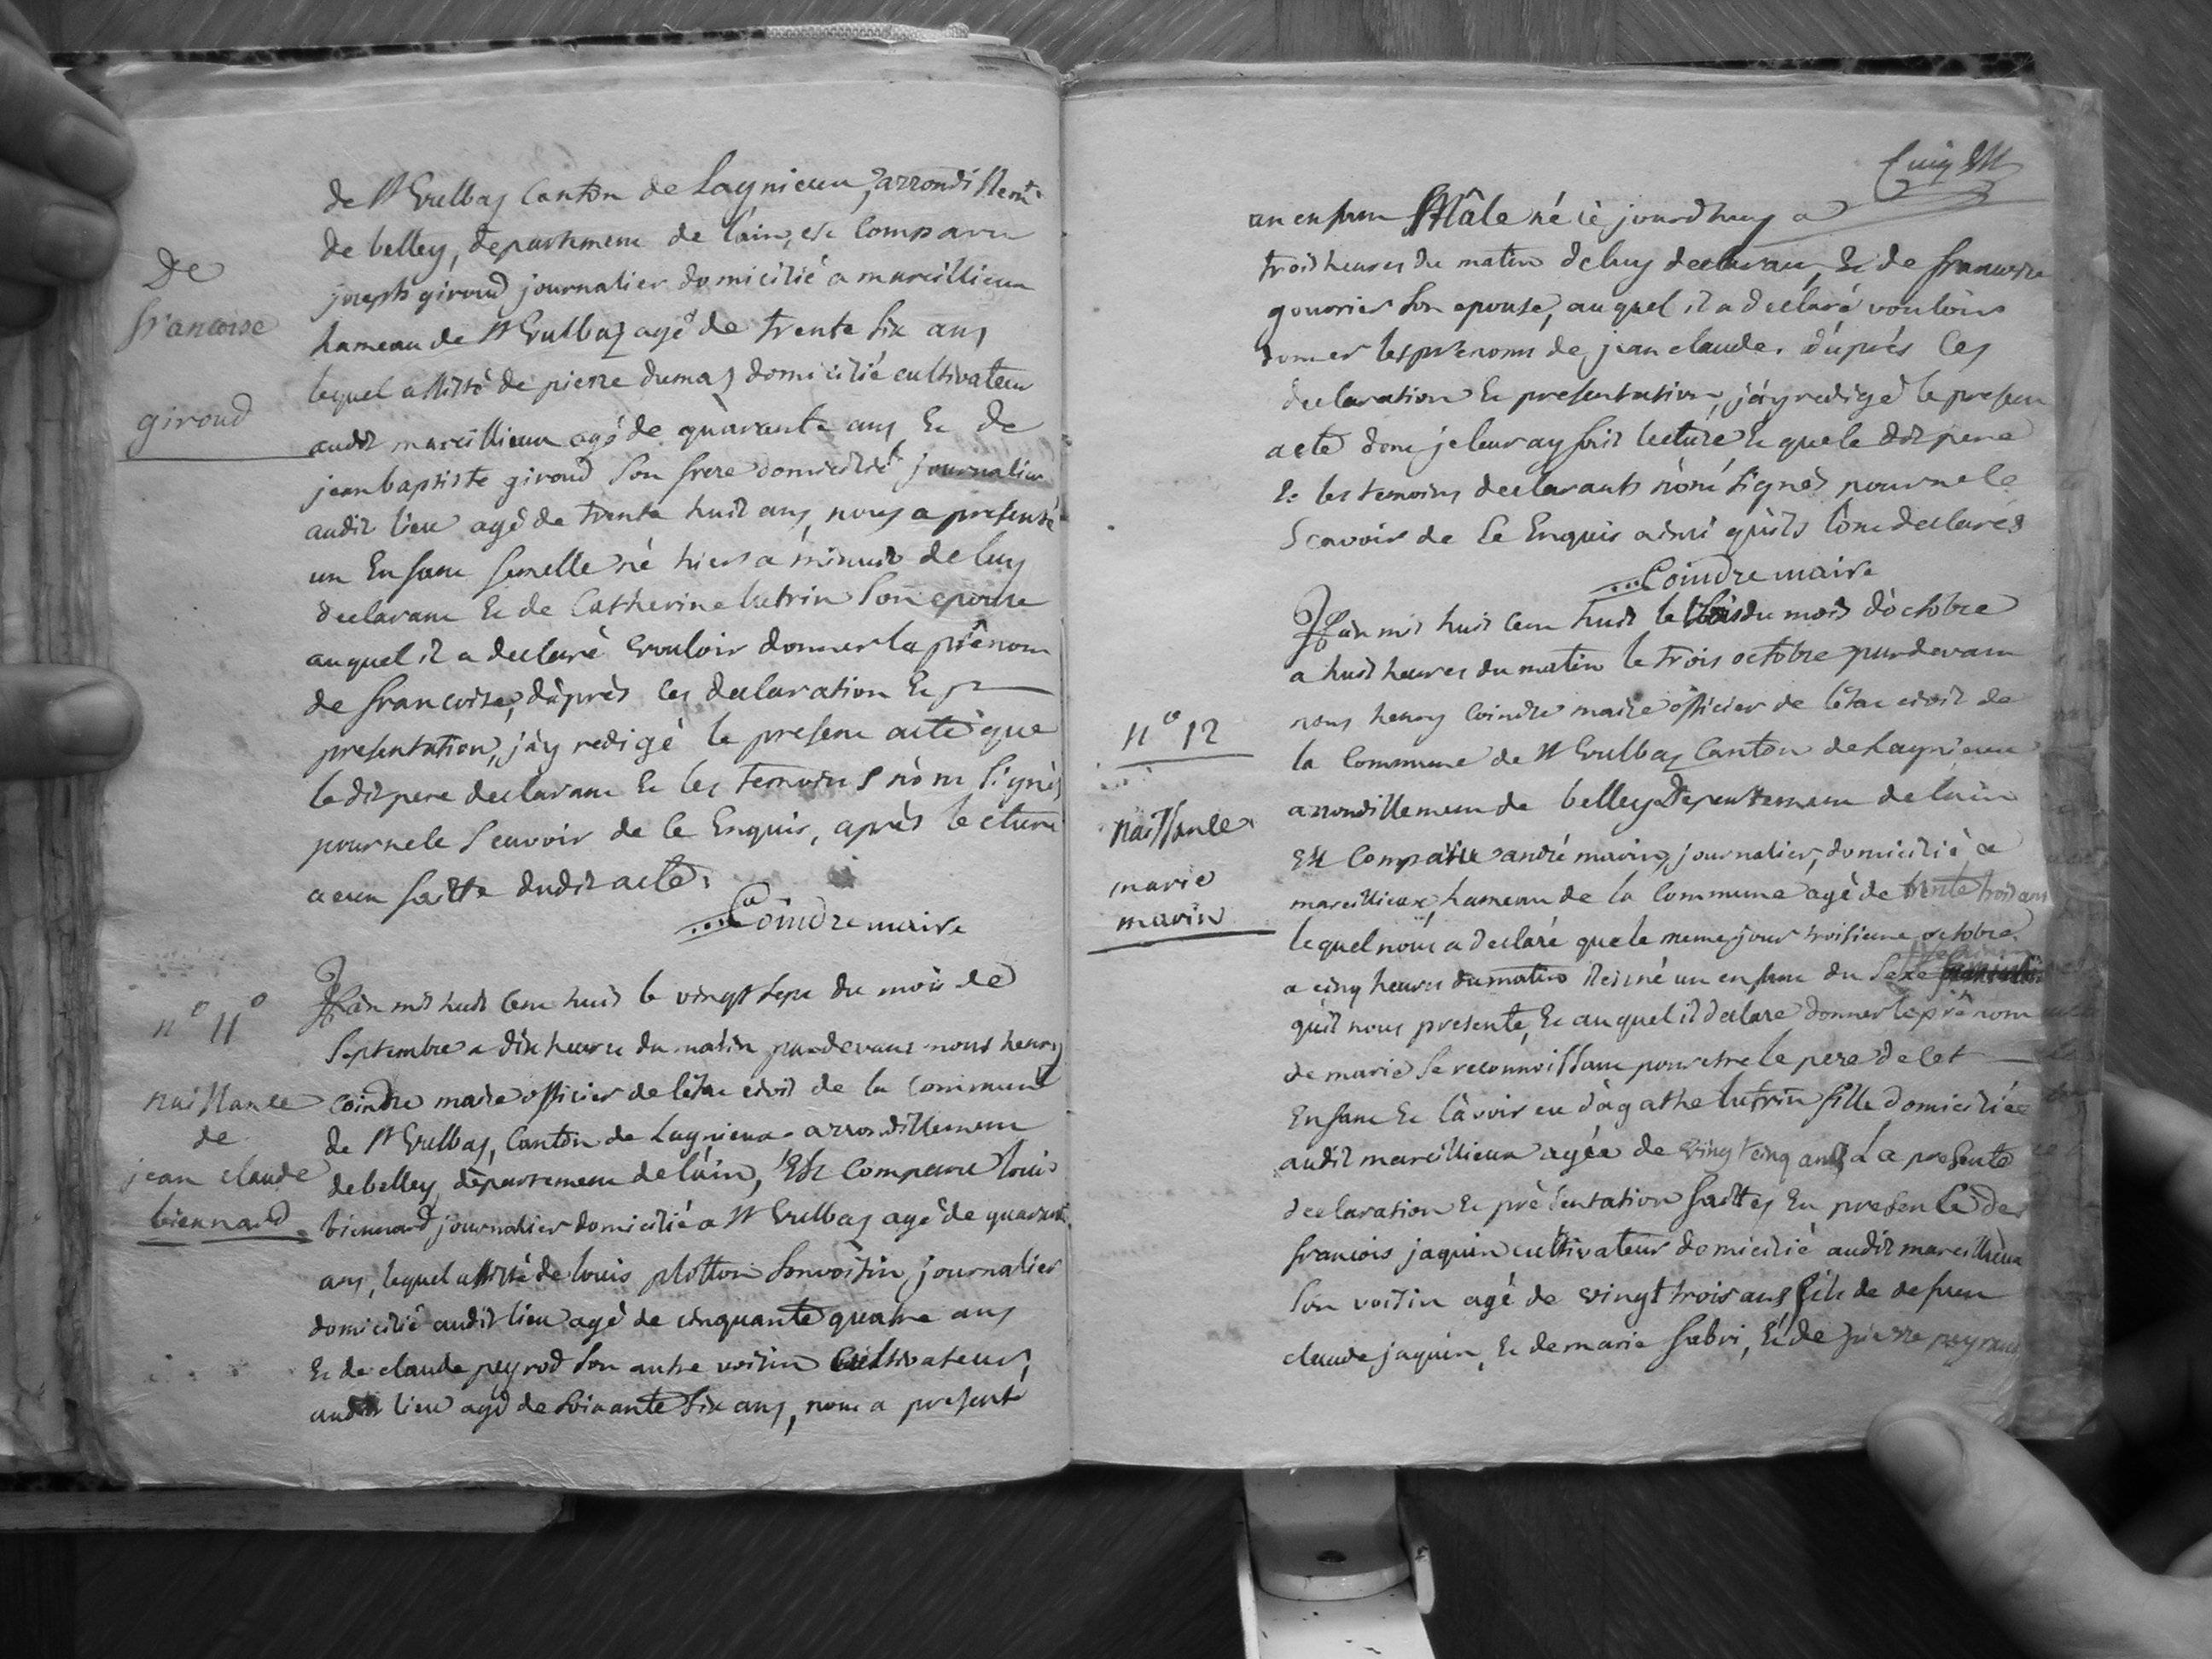 de St Vulbas Canton de Lagnieux, arrondissemt
de belley, departement de l'ain, est Comparu
De
francoise
giroud
joseph giroud journalier domicilié a marcillieux
hameau de St Vulbas agé de trente six ans
lequel assisté de pierre dumas domicilié cultivateur
audit marcillieux agé de quarante ans & de
jean baptiste giroud son frere domicilié journalier
audit lieu agé de trente huit ans, nous a presenté
un Enfant femelle né hier a minuit de luy
declarant & de Catherine lutrin son epouse
auquel il a declaré vouloir donner la prênom
de francoise, d'àprès ces declaration &
presentation, j'ay redigé le present acte que
le dit pere declarant & les temoins n'ont signés
pour ne le scavoir de ce Enquis, après lecture
a eux faitte dudit acte.
Coindre maire
n° 11°
naissance
de
jean claude
biennard
L'an mil huit cent huit le vingt sept du mois de
Septembre a dix heures du matin pardevant nous henry
coindre maire officier de l'état civil de la commune
de St Vulbas, Canton de Lagnieux arrondissement
de belley, département de l'ain, Est Comparu louis
biennard journalier domicilié a St Vulbas agé de quarante
ans, lequel assisté de louis plotton son voisin journalier
domicilié audit lieu agé de cinquante quatre ans
& de claude peyrod son autre voisin Cultivateur,
audit lieu agé de soixante six ans, nous a presenté
un enfant Mâle né cè jourdhuy a
trois heures du matin de luy declarant, & de francoise
gourrier son epouse, auquel il a declaré vouloir
donner les prenoms de jean claude. d'après ces
declaration & presentation, j'ay redigé le present
acte dont je leur ay fait lecture & que le dit pere
& les temoins declarants n'ont signés pour ne le
Scavoir de ce Enquis ainsi qu'ils l'ont declarés
Coindre maire
n° 12
naissance
marie
marin
L'àn mil huit cent huit le trois du mois d'octobre
a huit heures du matin le trois octobre pardevant
nous henry Coindre maire officier de l'état civil de
la Commune de St Vulbas Canton de Lagnieux
arrondissement de belley Departement de l'ain
Est Comparu andré marin, journalier, domicilié a
marcillieux, hameau de la Commune agé de trente trois ans
lequel nous a declaré que le meme jour troisieme octobre
a cinq heures du matin il est né un enfant du sexe
qu'il nous presente, & auquel il declare donner le prênom
de marie se reconnoissant pour etre le pere de cet
Enfant & l'avoir eu d'agathe lutrin fille domiciliée
audit marcillieux agée de vingt cinq ans la presente
declaration & présentation faittes En presence de
francois jaquin cultivateur domicilié audit marcillieux
son voisin agé de vingt trois ans fils de defunt
claude jaquin, & de marie fabri, & de pierre